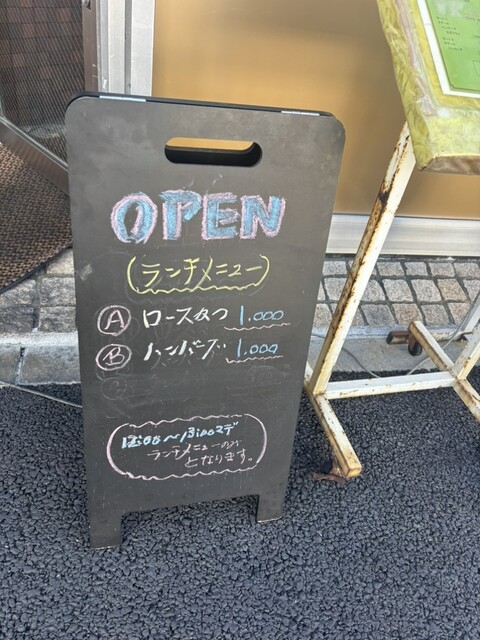 OPEN
(ランチメニュー)
Ⓐ ロースカツ 1,000
Ⓑ ハンバーグ 1,000
〜13:00マデ
ランチメニューのみ
となります。